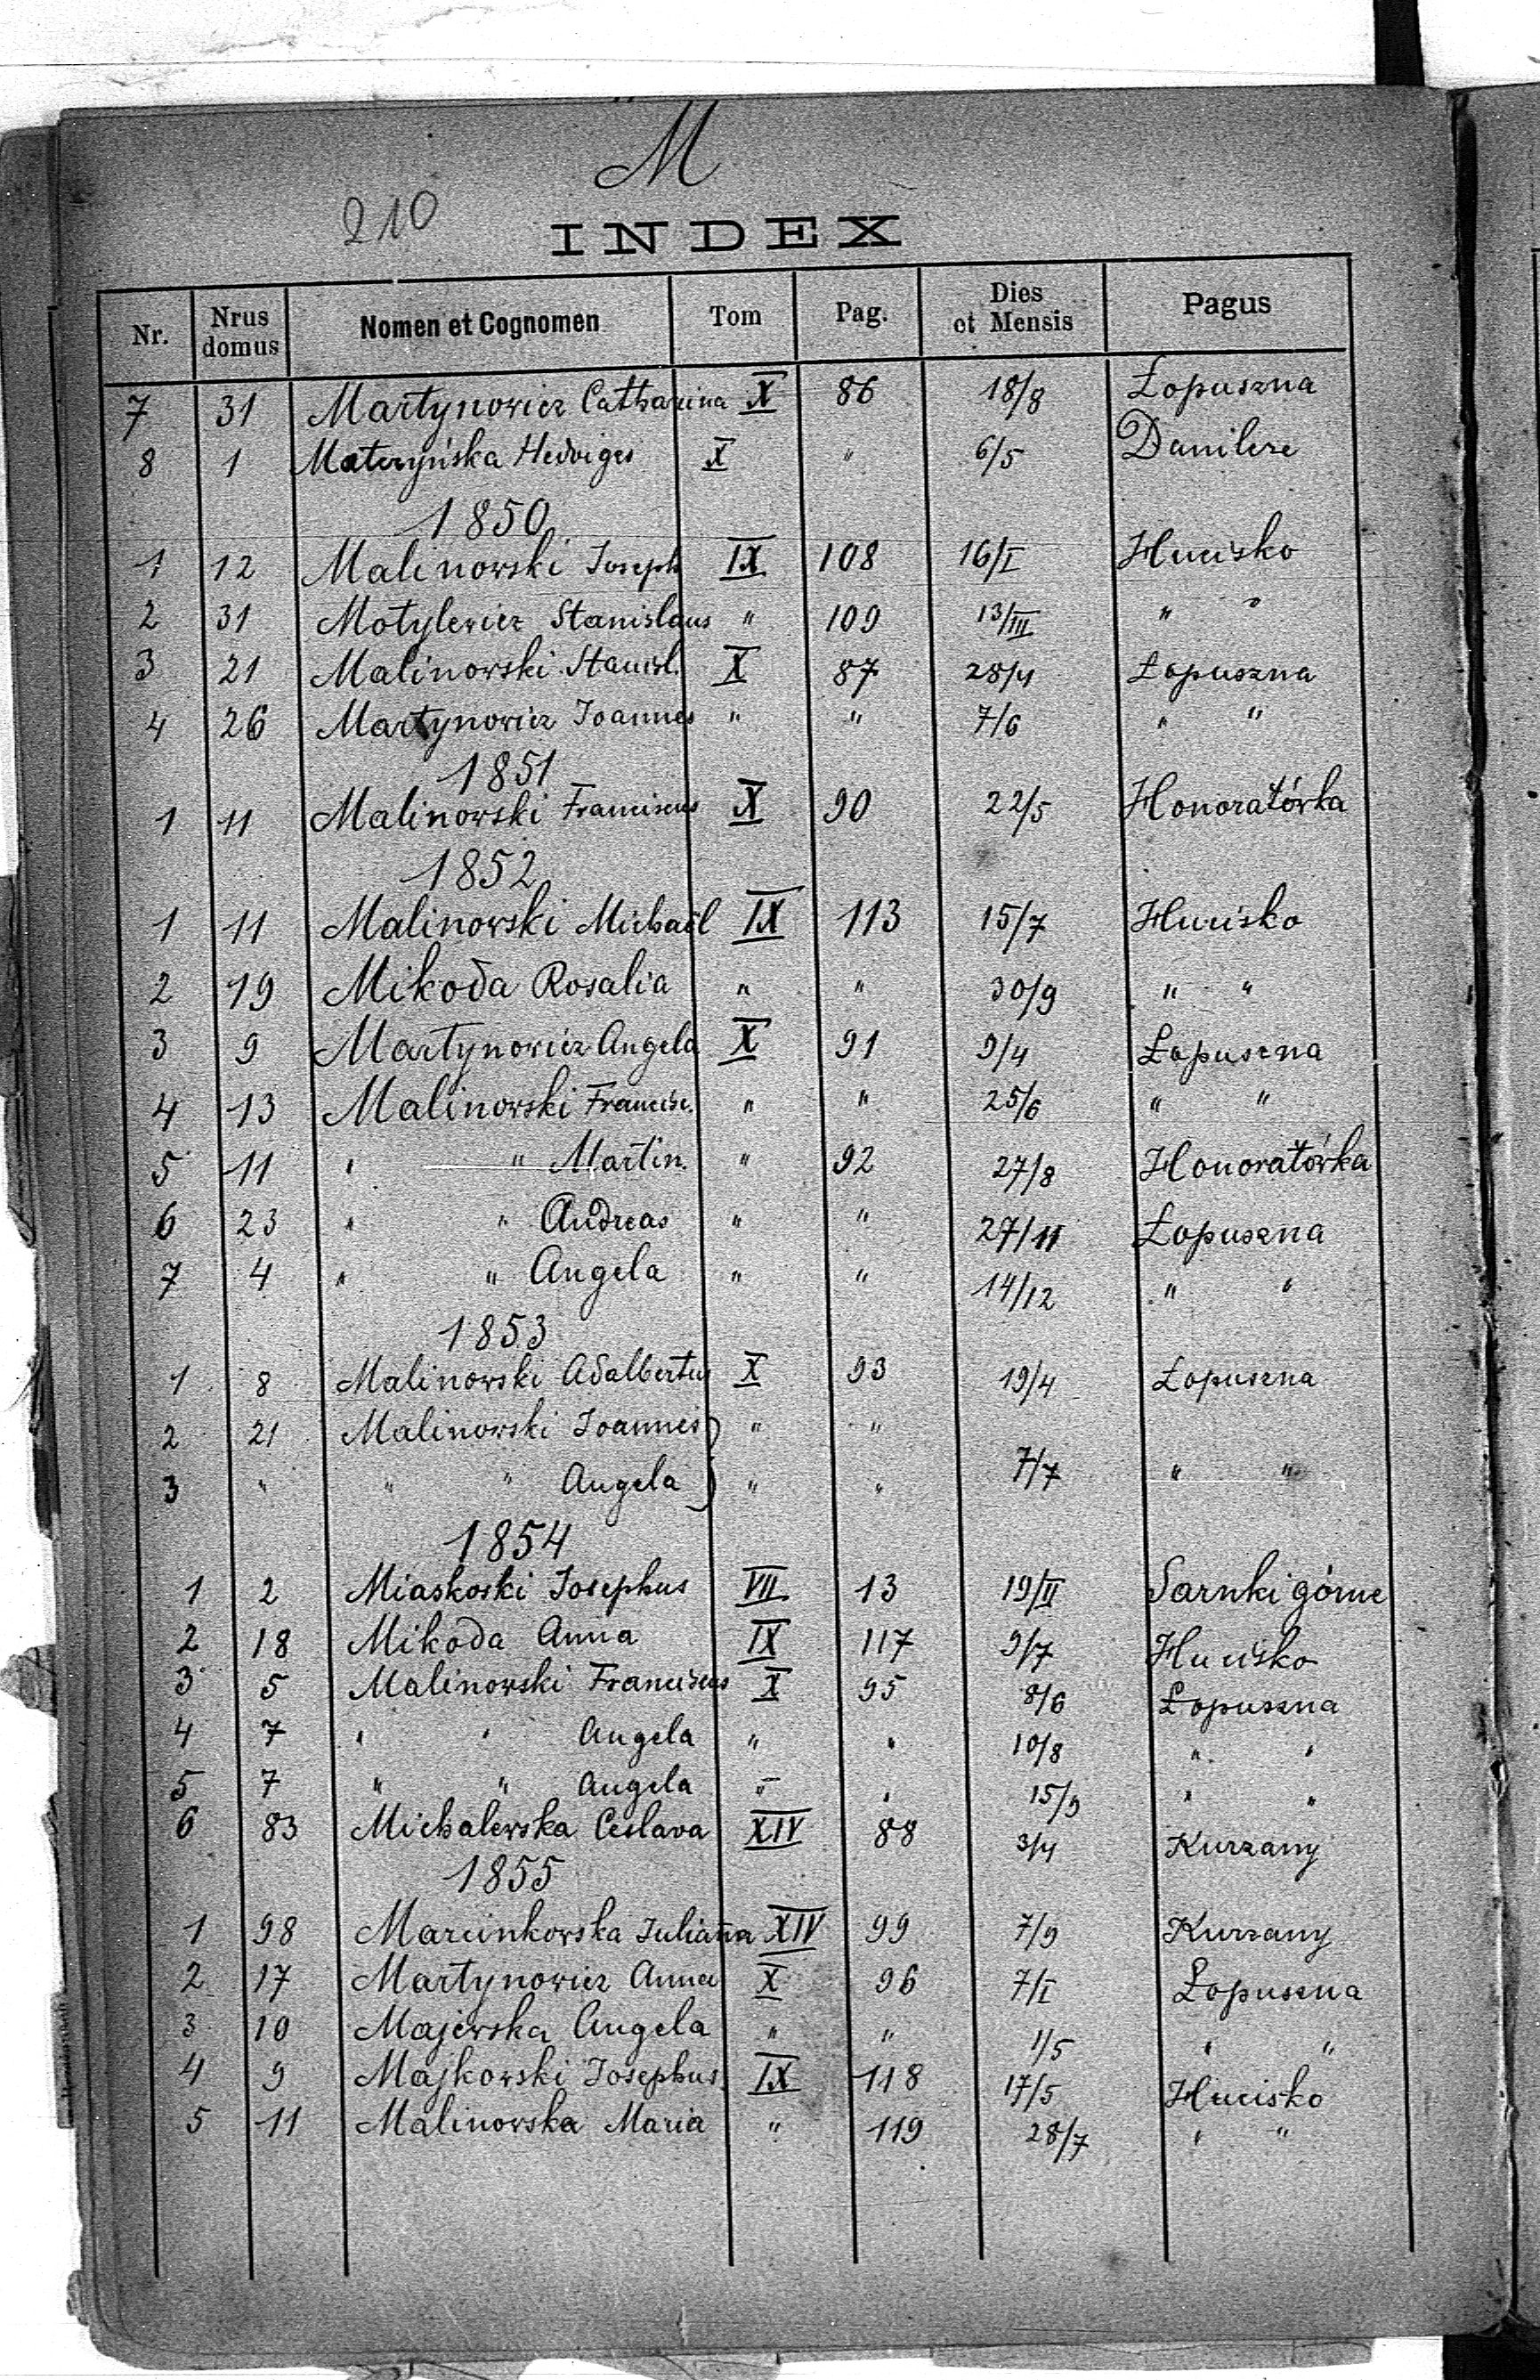 M
210
INDEX
Nr. Nrus domus Nomen et Cognomen Tom Pag. Dies et Mensis Pagus
7 31 Martynowicz Catharina X 86 18/8 Łopuszna
8 1 Materyńska Hedviges X " 6/5 Danilcze
1850
1 12 Malinowski Joseph IX 108 16/I Hucisko
2 31 Motylewicz Stanislaus " 109 13/III " "
3 21 Malinowski Stanisl. X 87 28/4 Łopuszna
4 26 Martynowicz Joannes " " 7/6 " "
1851
1 11 Malinowski Franciscus X 90 22/5 Honoratówka
1852
1 11 Malinowski Michaël IX 113 15/7 Hucisko
2 19 Mikoda Rosalia " " 30/9 " "
3 9 Martynowicz Angela X 91 9/4 Łopuszna
4 13 Malinowski Francisc. " " 25/6 " "
5 11 " " Martin. " 92 27/8 Honoratówka
6 23 " " Andreas " " 27/11 Łopuszna
7 4 " " Angela " " 14/12 " "
1853
1 8 Malinowski Adalbertus X 93 19/4 Łopuszna
2 21 Malinowski Joannes } " "
3 " " " Angela } " " 7/7 " "
1854
1 2 Miaskoski Josephus VII 13 19/II Sarnki górne
2 18 Mikoda Anna IX 117 9/7 Hucisko
3 5 Malinowski Franciscus X 95 8/6 Łopuszna
4 7 " " Angela " " 10/8 " "
5 7 " " Angela " " 15/9 " "
6 83 Michalewska Ceslava XIV 88 3/4 Kurzany
1855
1 98 Marcinkowska Julianna XIV 99 7/9 Kurzany
2 17 Martynowicz Anna X 96 7/I Łopuszna
3 10 Majewska Angela " " 1/5 " "
4 9 Majkowski Josephus IX 118 17/5 Hucisko
5 11 Malinowska Maria " 119 28/7 " "